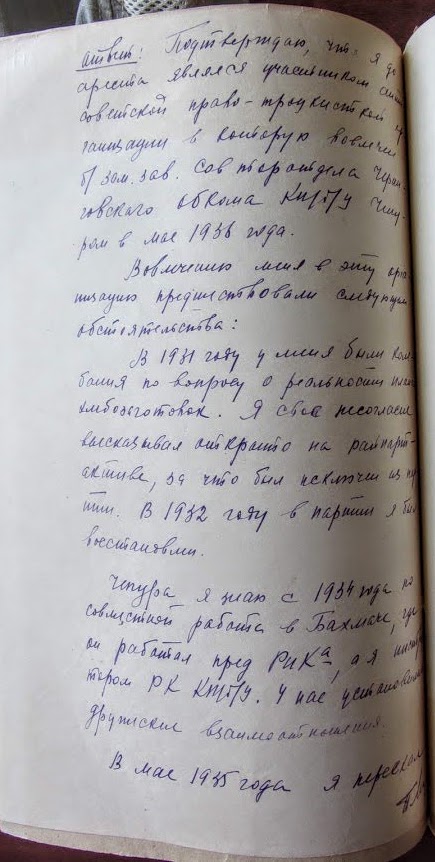 ответ: Подтверждаю, что я до
ареста являлся участником анти
советской право-троцкистской ор
ганизации в которую вовлечен
б/ зам. зав. сов торготдела Черни
говского обкома КП/б/У Чепу
рым в мае 1936 года.
Вовлечению меня в эту орга
низацию предшествовали следующие
обстоятельства:
В 1931 году у меня были коле
бания по вопросу о реальности плана
хлебозаготовок. Я свое несогласие
высказывал открыто на райпарт-
активе, за что был исключен из пар
тии. В 1932 году в партии я был
восстановлен.
Чепура я знаю с 1934 года по
совместной работе в Бахмаче, где
он работал пред РИКа, а я инструк
тором РК КП/б/У. У нас установились
дружеские взаимоотношения.
В мае 1935 года я переехал